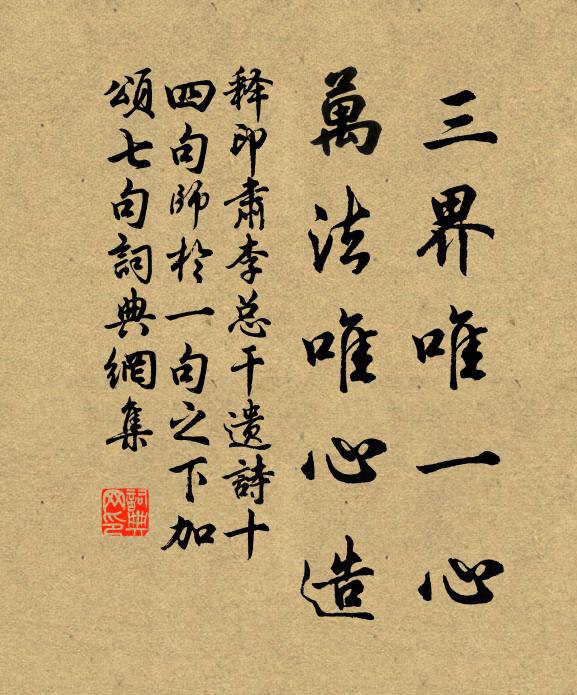 三界唯一心
萬法唯心造
释印肅李总干遗詩十
四句師於一句之下加
頌七句詞典網集
詞典網印